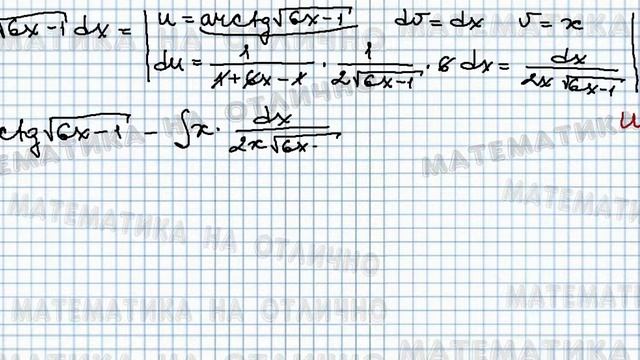 √6x-1 dx = | u = arctg√6x-1 dv = dx v = x
du = 1/(1+6x-1) · 1/(2√6x-1) · 6 dx = dx/(2x√6x-1) |
ctg√6x-1 - ∫x · dx/(2x√6x- u
МАТЕМАТИКА НА ОТЛИЧНО
МАТЕМАТИКА НА ОТЛИЧНО
МАТЕМАТИКА НА ОТЛИЧНО
МАТЕМАТИКА
МАТЕМАТИКА
МАТЕМАТИКА